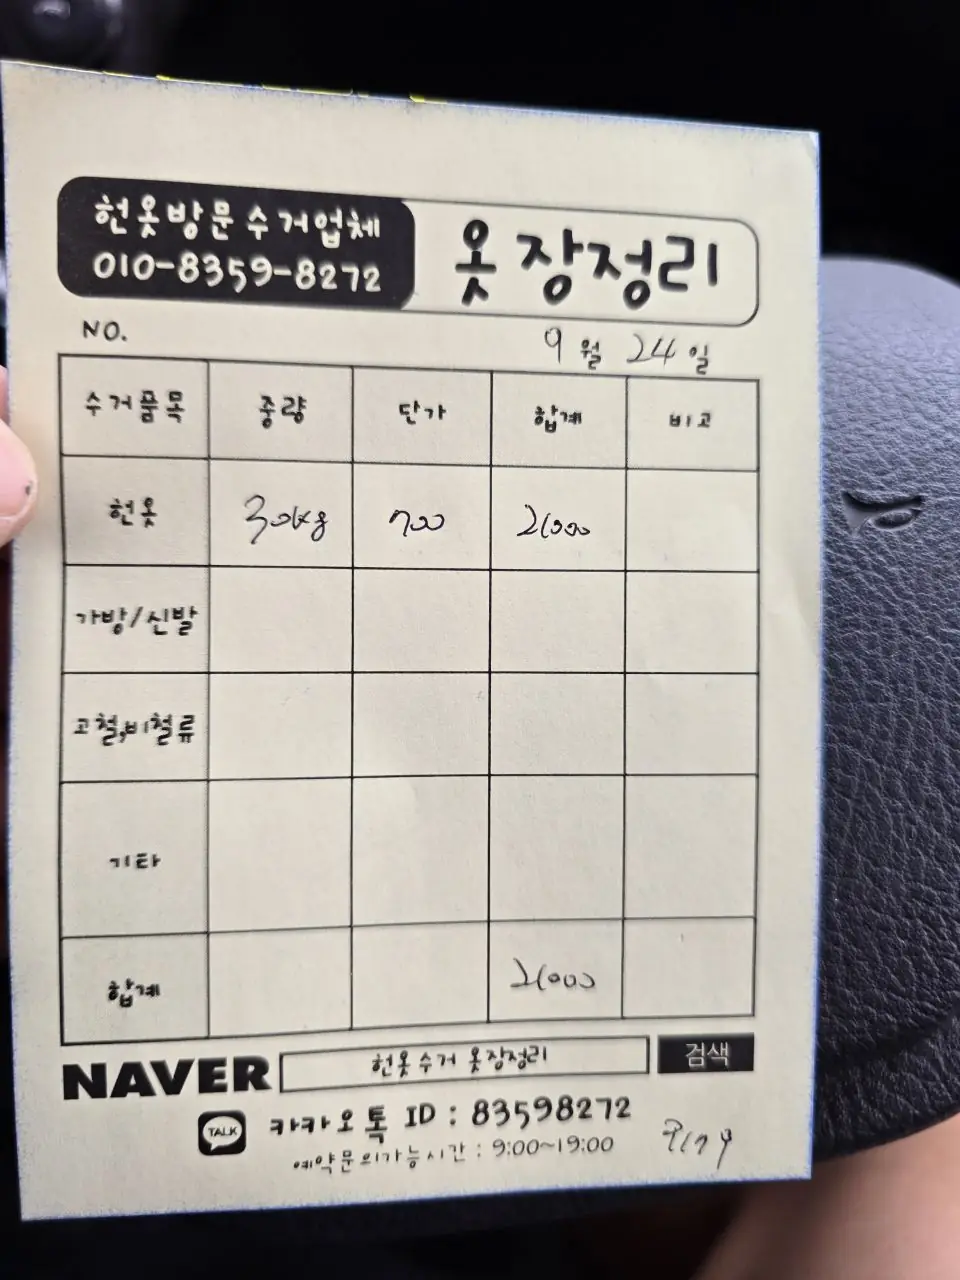 헌옷방문수거업체
010-8359-8272
옷장정리
NO.
9월 24일
수거품목 중량 단가 합계 비고
헌옷 30kg 700 21000
가방/신발
고철,비철류
기타
합계 21000
NAVER 헌옷수거 옷장정리 검색
TALK 카카오톡 ID : 83598272
예약문의가능시간 : 9:00~19:00